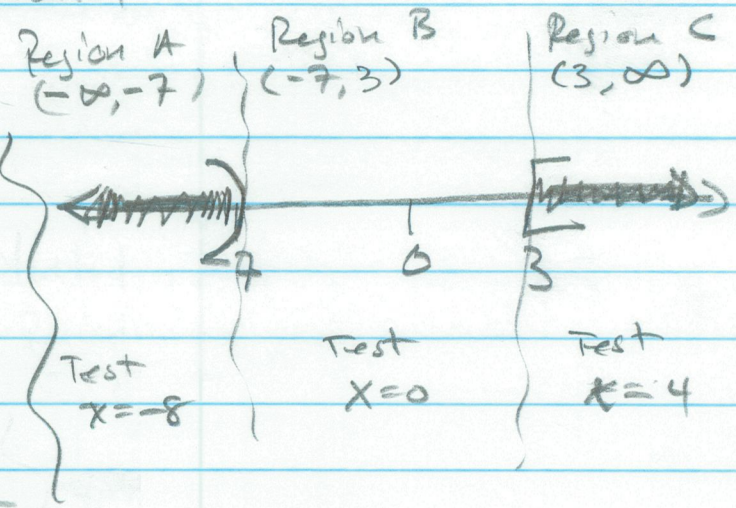 Region A
(-∞, -7)
Region B
(-7, 3)
Region C
(3, ∞)
-7
0
3
Test
x=-8
Test
x=0
Test
x=4